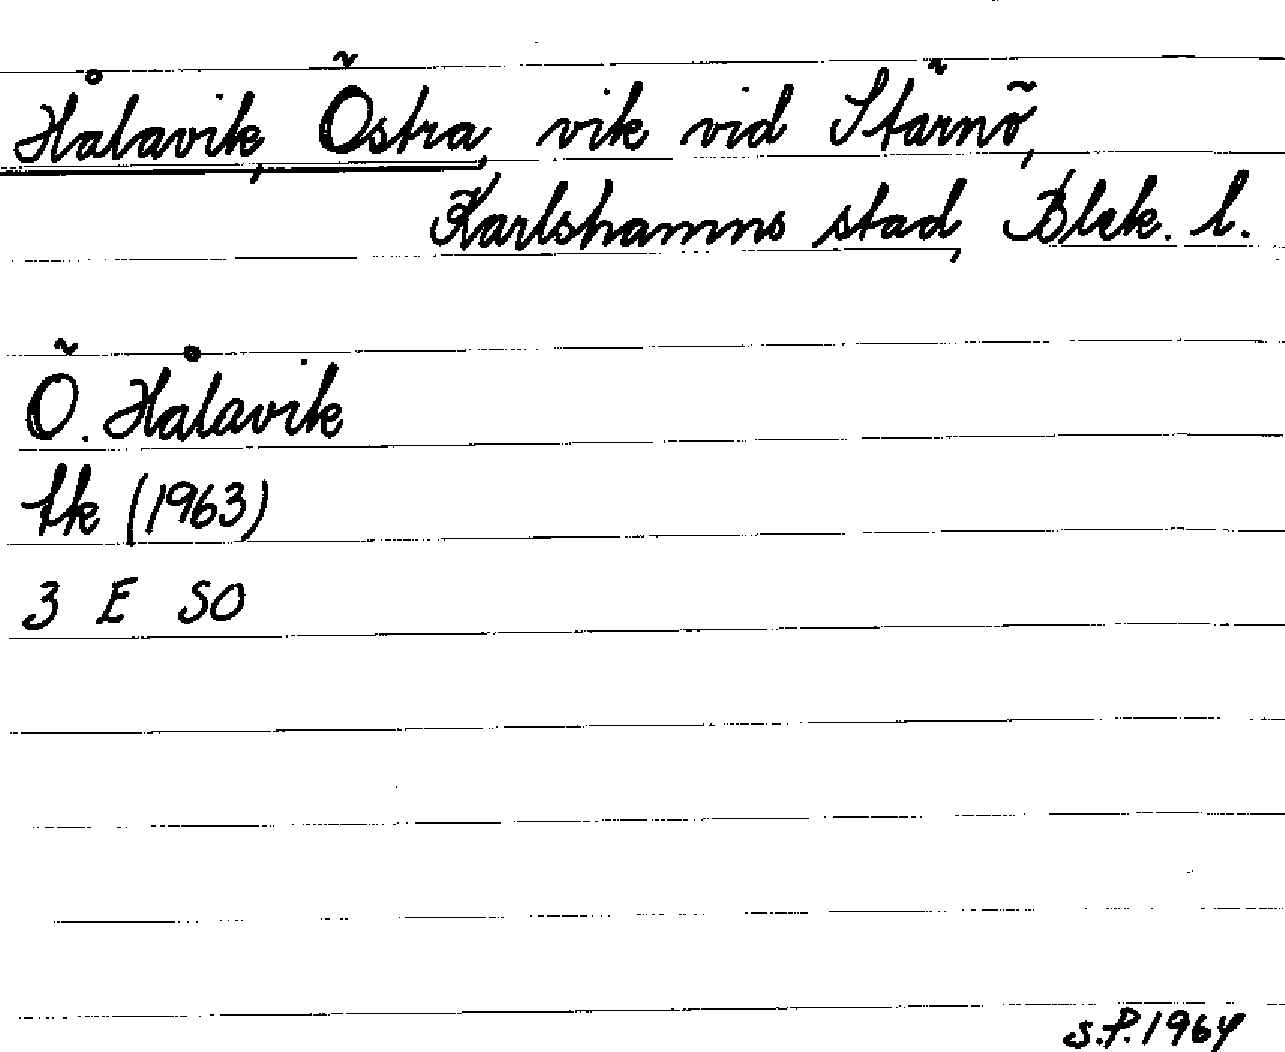 Hålavik, Östra, vik vid Stärnö,
Karlshamns stad, Blek. l.
Ö. Hålavik
tk (1963)
3 E SO
S.P. 1964